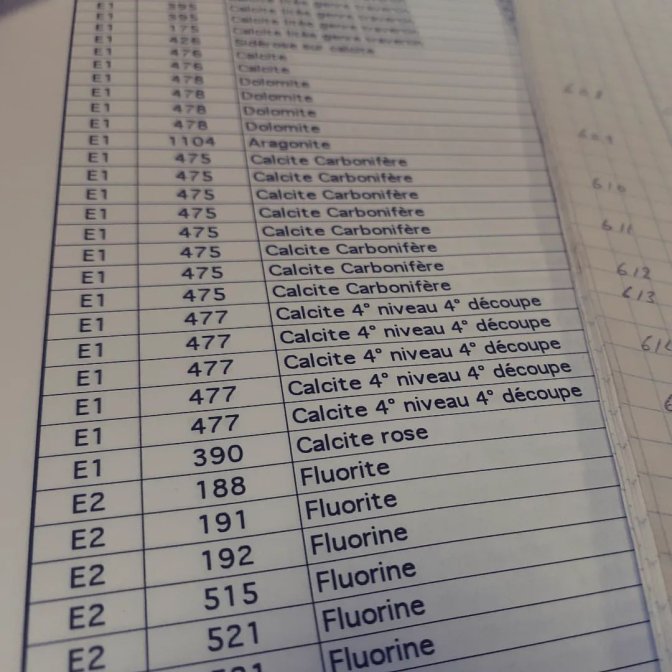 E1 395
E1 395
E1 175
E1 426 Sidérose sur calcite
E1 476 Calcite
E1 476 Calcite
E1 478 Dolomite
E1 478 Dolomite
E1 478 Dolomite
E1 478 Dolomite
E1 1104 Aragonite
E1 475 Calcite Carbonifère
E1 475 Calcite Carbonifère
E1 475 Calcite Carbonifère
E1 475 Calcite Carbonifère
E1 475 Calcite Carbonifère
E1 475 Calcite Carbonifère
E1 475 Calcite Carbonifère
E1 475 Calcite Carbonifère
E1 477 Calcite 4° niveau 4° découpe
E1 477 Calcite 4° niveau 4° découpe
E1 477 Calcite 4° niveau 4° découpe
E1 477 Calcite 4° niveau 4° découpe
E1 477 Calcite 4° niveau 4° découpe
E1 390 Calcite rose
E2 188 Fluorite
E2 191 Fluorite
E2 192 Fluorine
E2 515 Fluorine
E2 521 Fluorine
Fluorine
608
609
610
611
612
613